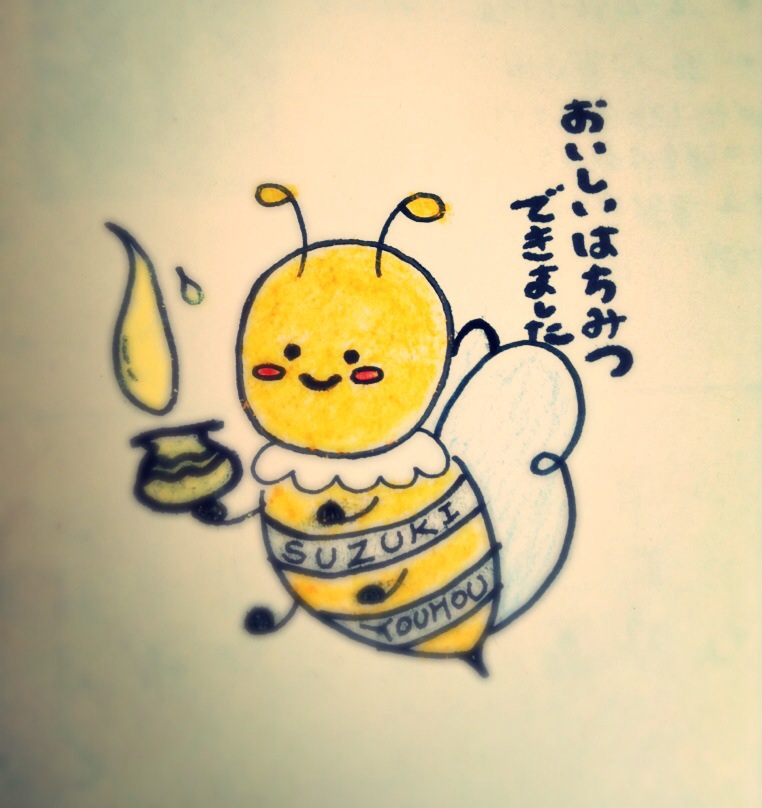 おいしいはちみつ
できました
SUZUKI
YOUHOU